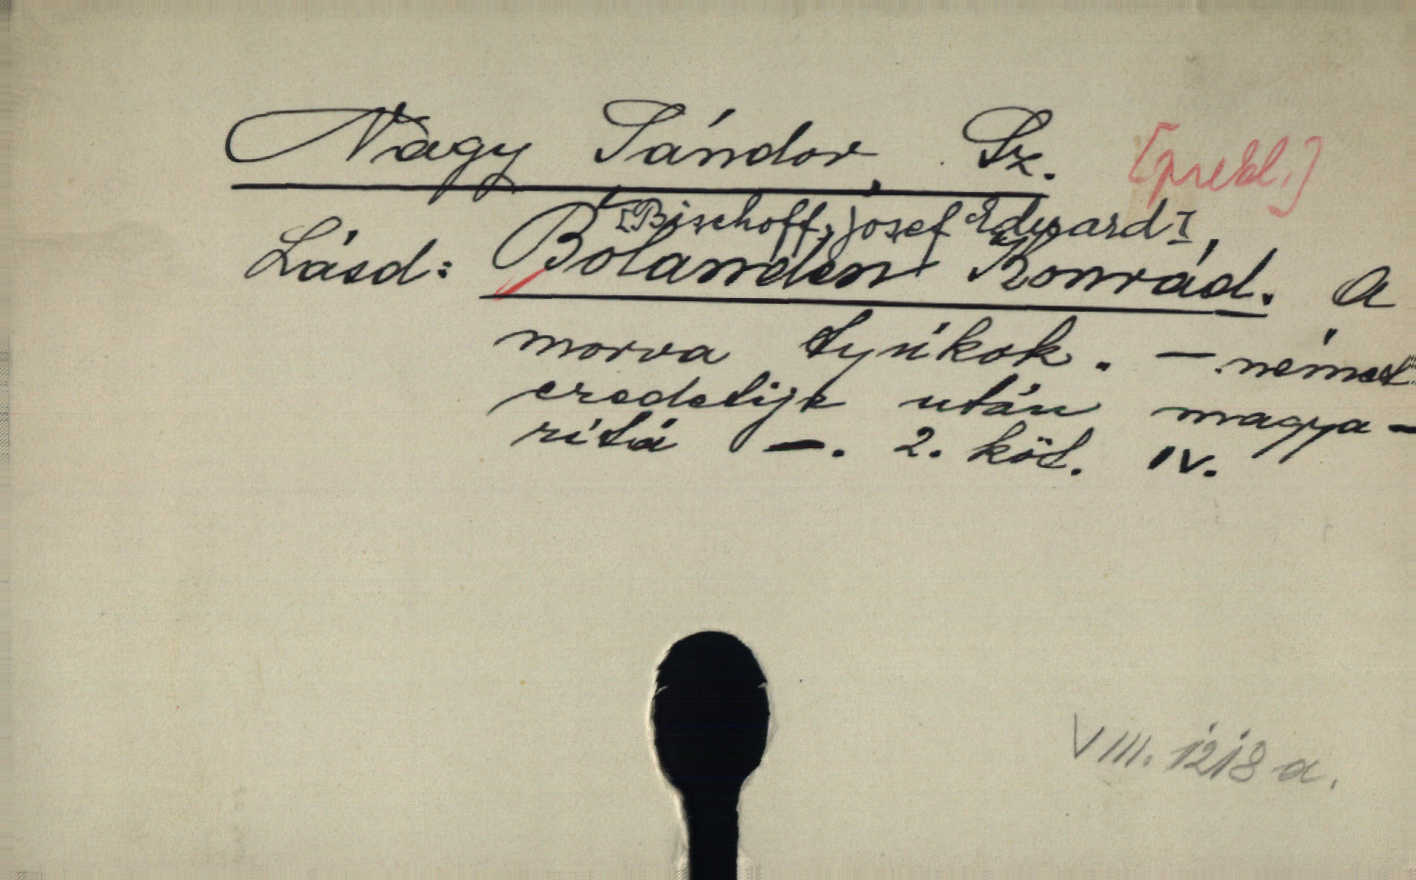 Nagy Sándor, Sz. [prekl.]
[Bischoff, Josef Edward],
Lásd: Bolanden Konrád. A
morva tyúkok. — német
eredetije után magya-
ritá —. 2. köt. IV.
VIII. 1218 a.